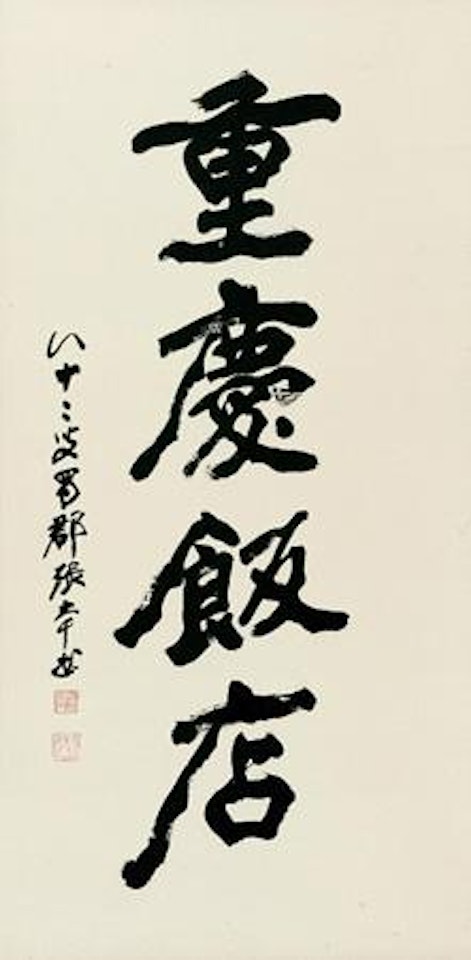 重慶飯店
八十二叟蜀郡張大千書